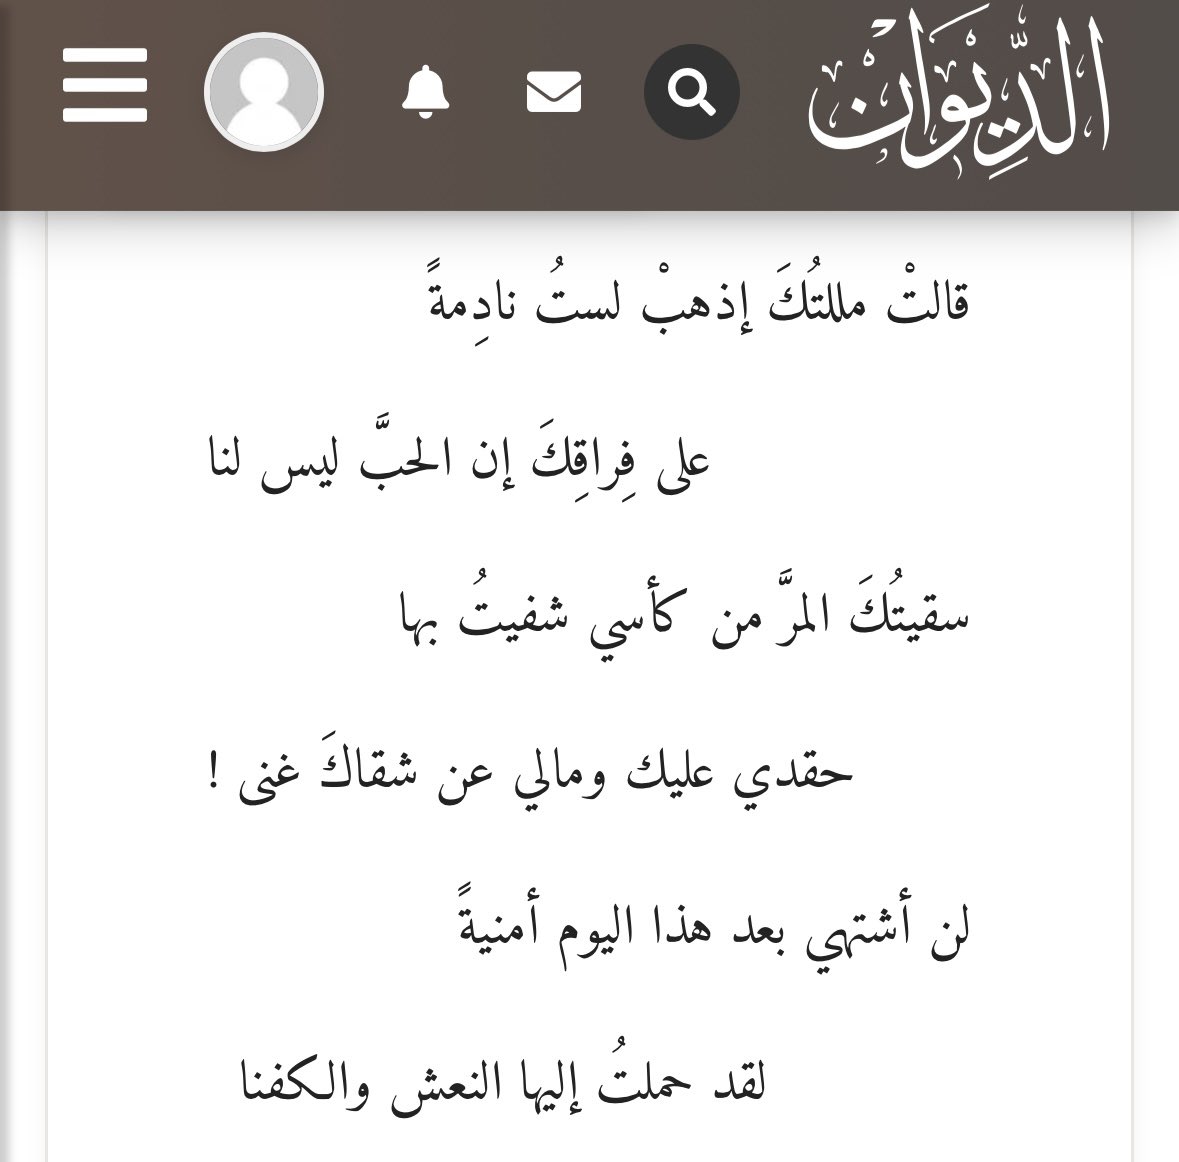 الدِّيْوَانْ
قالتْ مللتُكَ إذهبْ لستُ نادِمةً
على فِراقِكَ إن الحبَّ ليس لنا
سقيتُكَ المرَّ من كأسي شفيتُ بها
حقدي عليك ومالي عن شقاكَ غنى !
لن أشتهي بعد هذا اليوم أمنيةً
لقد حملتُ إليها النعش والكفنا